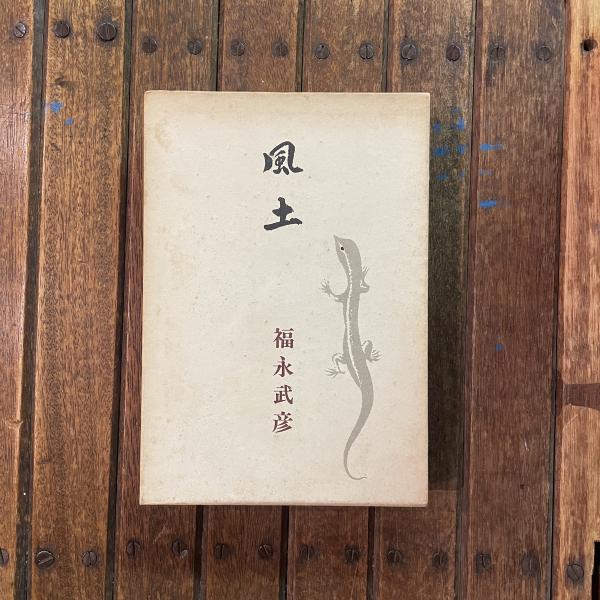 風土
福永武彦